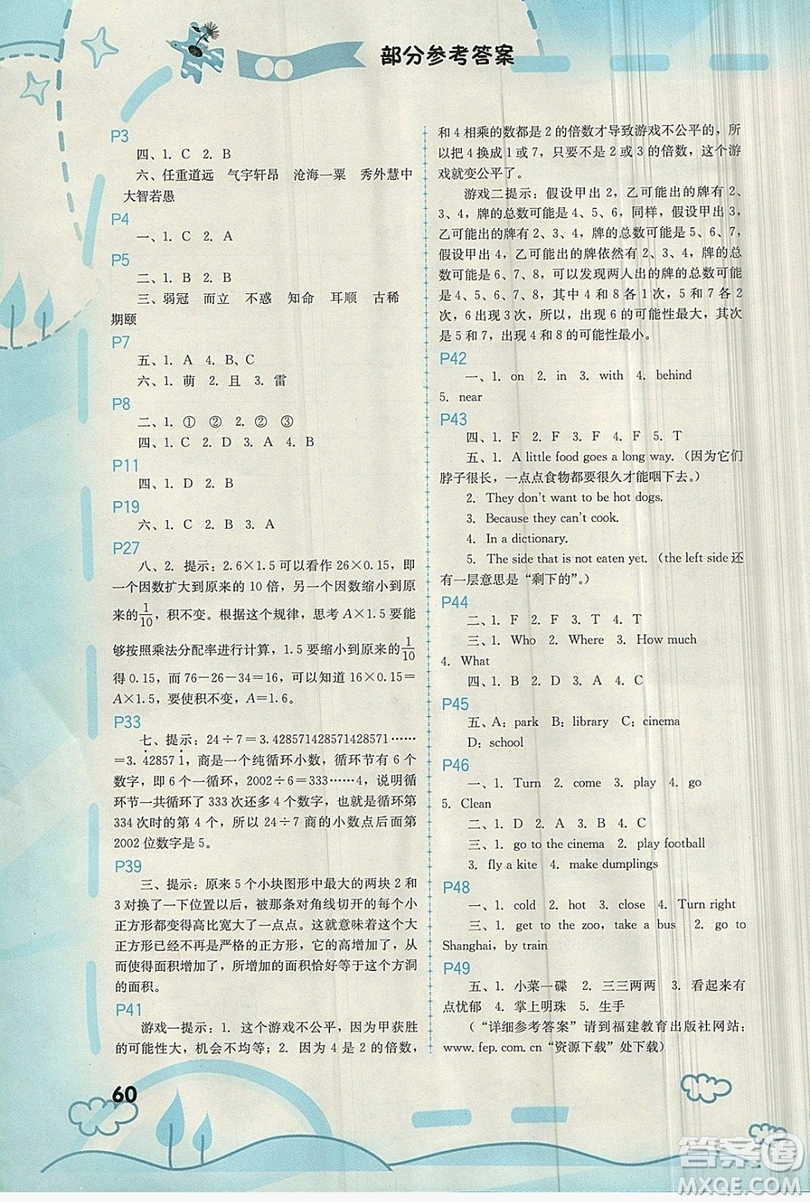 部分参考答案
P3
四、1. C 2. B
六、任重道远 气宇轩昂 沧海一粟 秀外慧中
大智若愚
P4
一、1. C 2. A
P5
二、1. B 2. B
三、弱冠 而立 不惑 知命 耳顺 古稀
期颐
P7
五、1. A 4. B. C
六、1. 萌 2. 且 3. 雷
P8
二、1. ① ② 2. ② ③
四、1. C 2. D 3. A 4. B
P11
四、1. D 2. B
P19
六、1. C 2. B 3. A
P27
八、2. 提示：2.6×1.5 可以看作 26×0.15，即
一个因数扩大到原来的 10 倍，另一个因数缩小到原来
的1/10，积不变。根据这个规律，思考 A×1.5 要能
够按照乘法分配率进行计算，1.5 要缩小到原来的1/10
得 0.15，而 76-26-34=16，可以知道 16×0.15=
A×1.5，要使积不变，A=1.6。
P33
七、提示：24÷7=3.428571428571428571……
=3.4̇28571̇，商是一个纯循环小数，循环节有 6 个
数字，即 6 个一循环，2002÷6=333……4，说明循
环节一共循环了 333 次还余 4 个数，也就是循环第
334 次时的第 4 个，所以 24÷7 商的小数点后面第
2002 位数字是 5。
P39
三、提示：原来 5 个小块图形中最大的两块 2 和
3 对换了一下位置，被那条对角线切开的每个小
正方形都变得高比宽大了一点点。这就意味着这个大
正方形已经不再是严格的正方形，它的高增加了，从
而使得面积增加了，所增加的面积恰好等于这个方洞
的面积。
P41
游戏一提示：1. 这个游戏不公平，因为甲获胜
的可能性大，机会不均等；2. 因为 4 是 2 的倍数，
和 4 相乘的数都是 2 的倍数才导致游戏不公平的，所
以把 4 换成 1 或 7，只要不是 2 的倍数，这个游
戏就变公平了。
游戏二提示：假设甲出 2，乙可能出的牌有 2、
3、4，牌的总数可能是 4、5、6，同样，假设甲出 3，
乙可能出的牌依然有 2、3、4，牌的总数可能是 5、6、7，
假设甲出 4，乙可能出的牌依然有 2、3、4，牌的总数
可能是 6、7、8，所以可以发现两人出的牌总数可能
是 4、5、6、7、8，其中 4 和 8 各出现 1 次，5 和 7 各 2
次，6 出现 3 次，所以，出现 6 的可能性最大，其次
是 5 和 7，出现 4 和 8 的可能性最小。
P42
一、1. on 2. in 3. with 4. behind
5. near
P43
四、1. F 2. F 3. F 4. F 5. T
五、1. A little food goes a long way.（因为它们
脖子很长，一点点食物都要很久才能咽下去。）
2. They don't want to be hot dogs.
3. Because they can't cook.
4. In a dictionary.
5. The side that is not eaten yet.（the left side还
有一层意思是“剩下的”。）
P44
二、1. F 2. F 3. T 4. T
三、1. Who 2. Where 3. How much
4. What
四、1. B 2. C 3. D 4. A
P45
五、A：park B：library C：cinema
D：school
P46
一、1. Turn 2. come 3. play 4. go
5. Clean
二、1. go to the cinema 2. play football
3. fly a kite 4. make dumplings
P48
一、1. cold 2. right 3. close 4. old
三、1. get to the zoo, take a bus 2. go to
Shanghai, by train
P49
五、1. 小菜一碟 2. 三三两两 3. 看起来有
点忧郁 4. 掌上明珠 5. 生手
（“详细参考答案”请到福建教育出版社网站：
www.fep.com.cn“资源下载”处下载）
60
答案圈
MXQE.COM